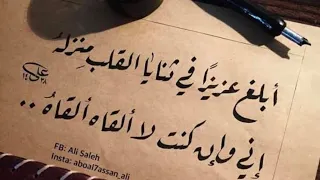 أبلغ عزيزًا في ثنايا القلبِ منزلهُ
إني وإن كنت لا ألقاه ألقاهُ ..
FB: Ali Saleh
Insta: aboal7assan_ali